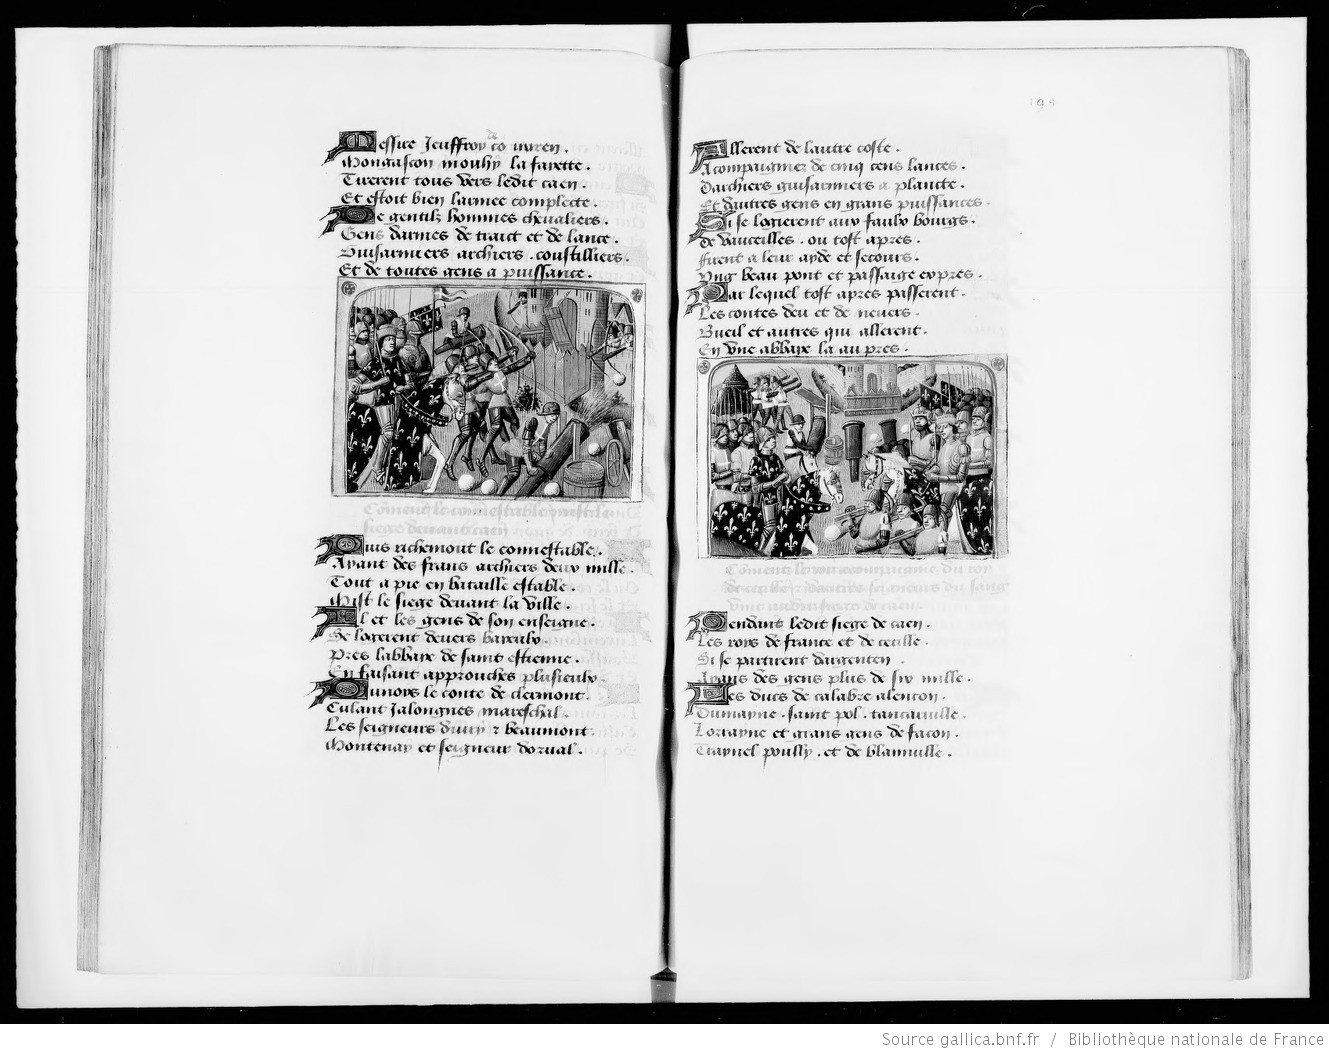 Messire Jeuffroy de co uuren .
Mongascon mouhy la fayette .
Tirerent tous vers ledit caen .
Et estoit bien larmee complecte .
De gentilz hommes chevaliers .
Gens darmes de traict et de lance .
Guisarmiers archiers . coustilliers .
Et de toutes gens a puissance .
Coment le connestable mist le
siege devant caen
Puis richemont le connestable .
Ayant des frans archiers deux mille .
Tout a pie en bataille estable .
Mist le siege devant la ville .
Il et les gens de son enseigne .
Se logerent devers bayeulx .
Pres labbaye de saint estienne .
En faisant approuches plusieulx .
Dunoys le conte de clermont .
Culant Jalongnes mareschal .
Les seigneurs divry z beaumont .
Montenay et seigneur dorval .
198
Allerent de lautre coste .
Acompaigniez de cinq cens lances .
Darchiers guisarmiers a plancte .
Et dautres gens en grans puissances .
Si se logierent aux faulx bourgs .
de vaucelles . ou tost apres .
ffirent a leur ayde et secours .
Ung beau pont et passaige expres .
Par lequel tost apres passerent .
Les contes deu et de nevers .
Bueil et autres qui allerent .
En une abbaye la au pres .
Coment le roy acompaigne du roy
de cecille z dautres seigneurs du sang
vint audit siege de caen
Pendant ledit siege de caen .
Les roys de france et de cecille .
Si se partirent dargenten .
Ayans des gens plus de six mille .
Les ducs de calabre alencon .
Dumayne . saint pol . tancarville .
Lorrayne et grans gens de facon .
Traynel poully . et de blainville .
Source gallica.bnf.fr / Bibliothèque nationale de France